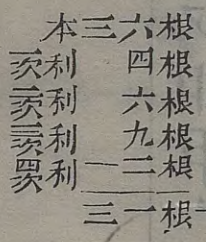 本三六根
一次利 四根
二次利 六根
三次利 九根
四次利 一二根
三一根